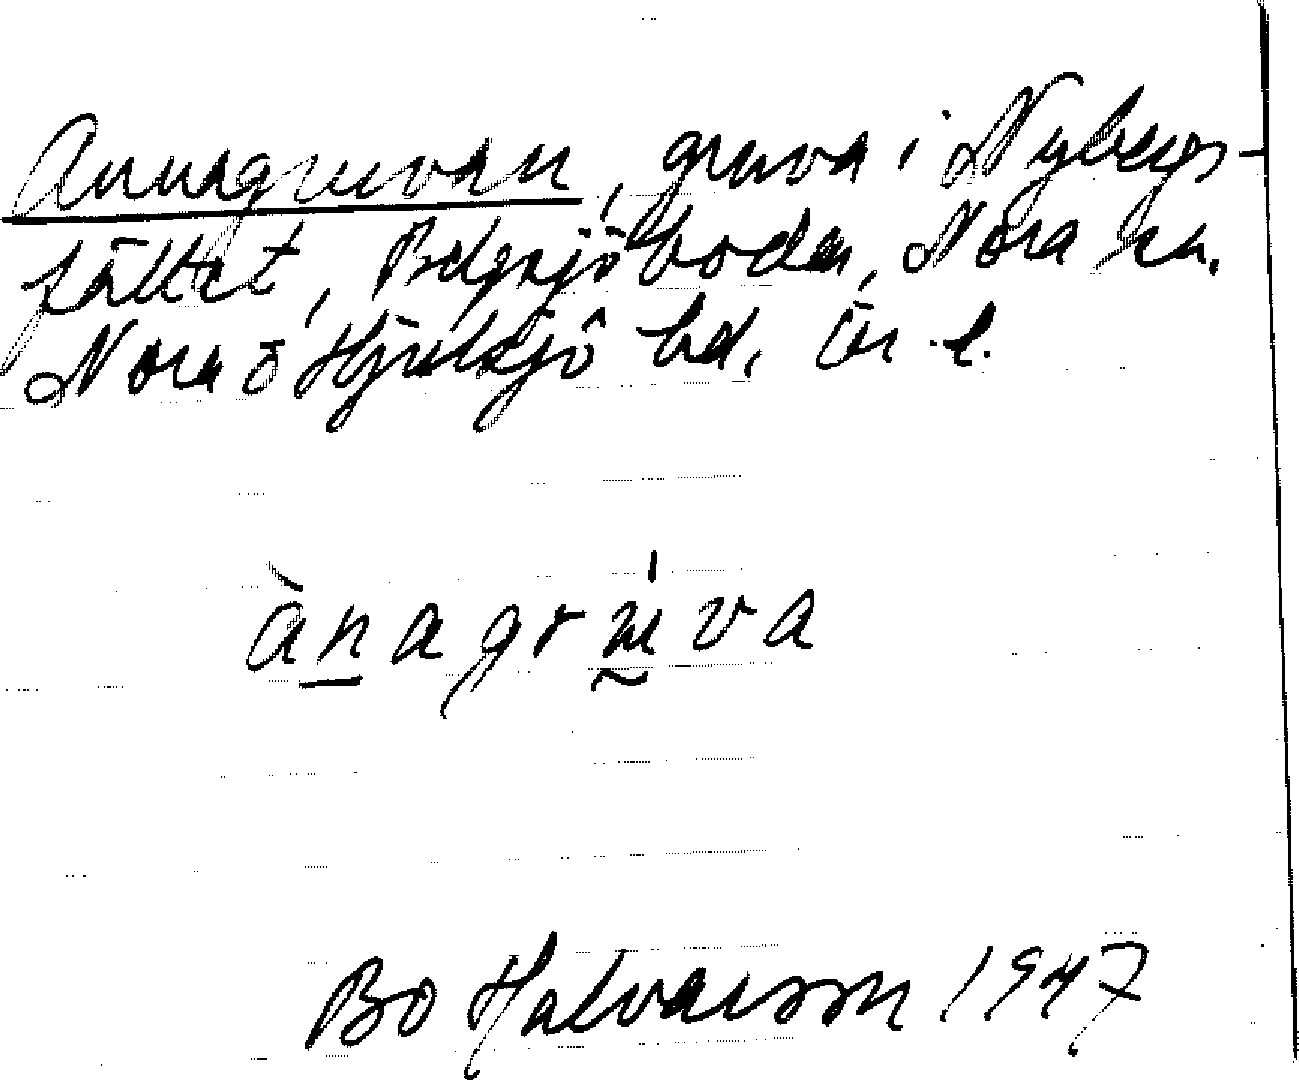 Annagruvan, gruva i Nybergs-
fältet, Belgsjöbodar, Nora sn.
Nora o Hjulsjö bd. Ör. l.
ànagrúva
Bo Halvarson 1947